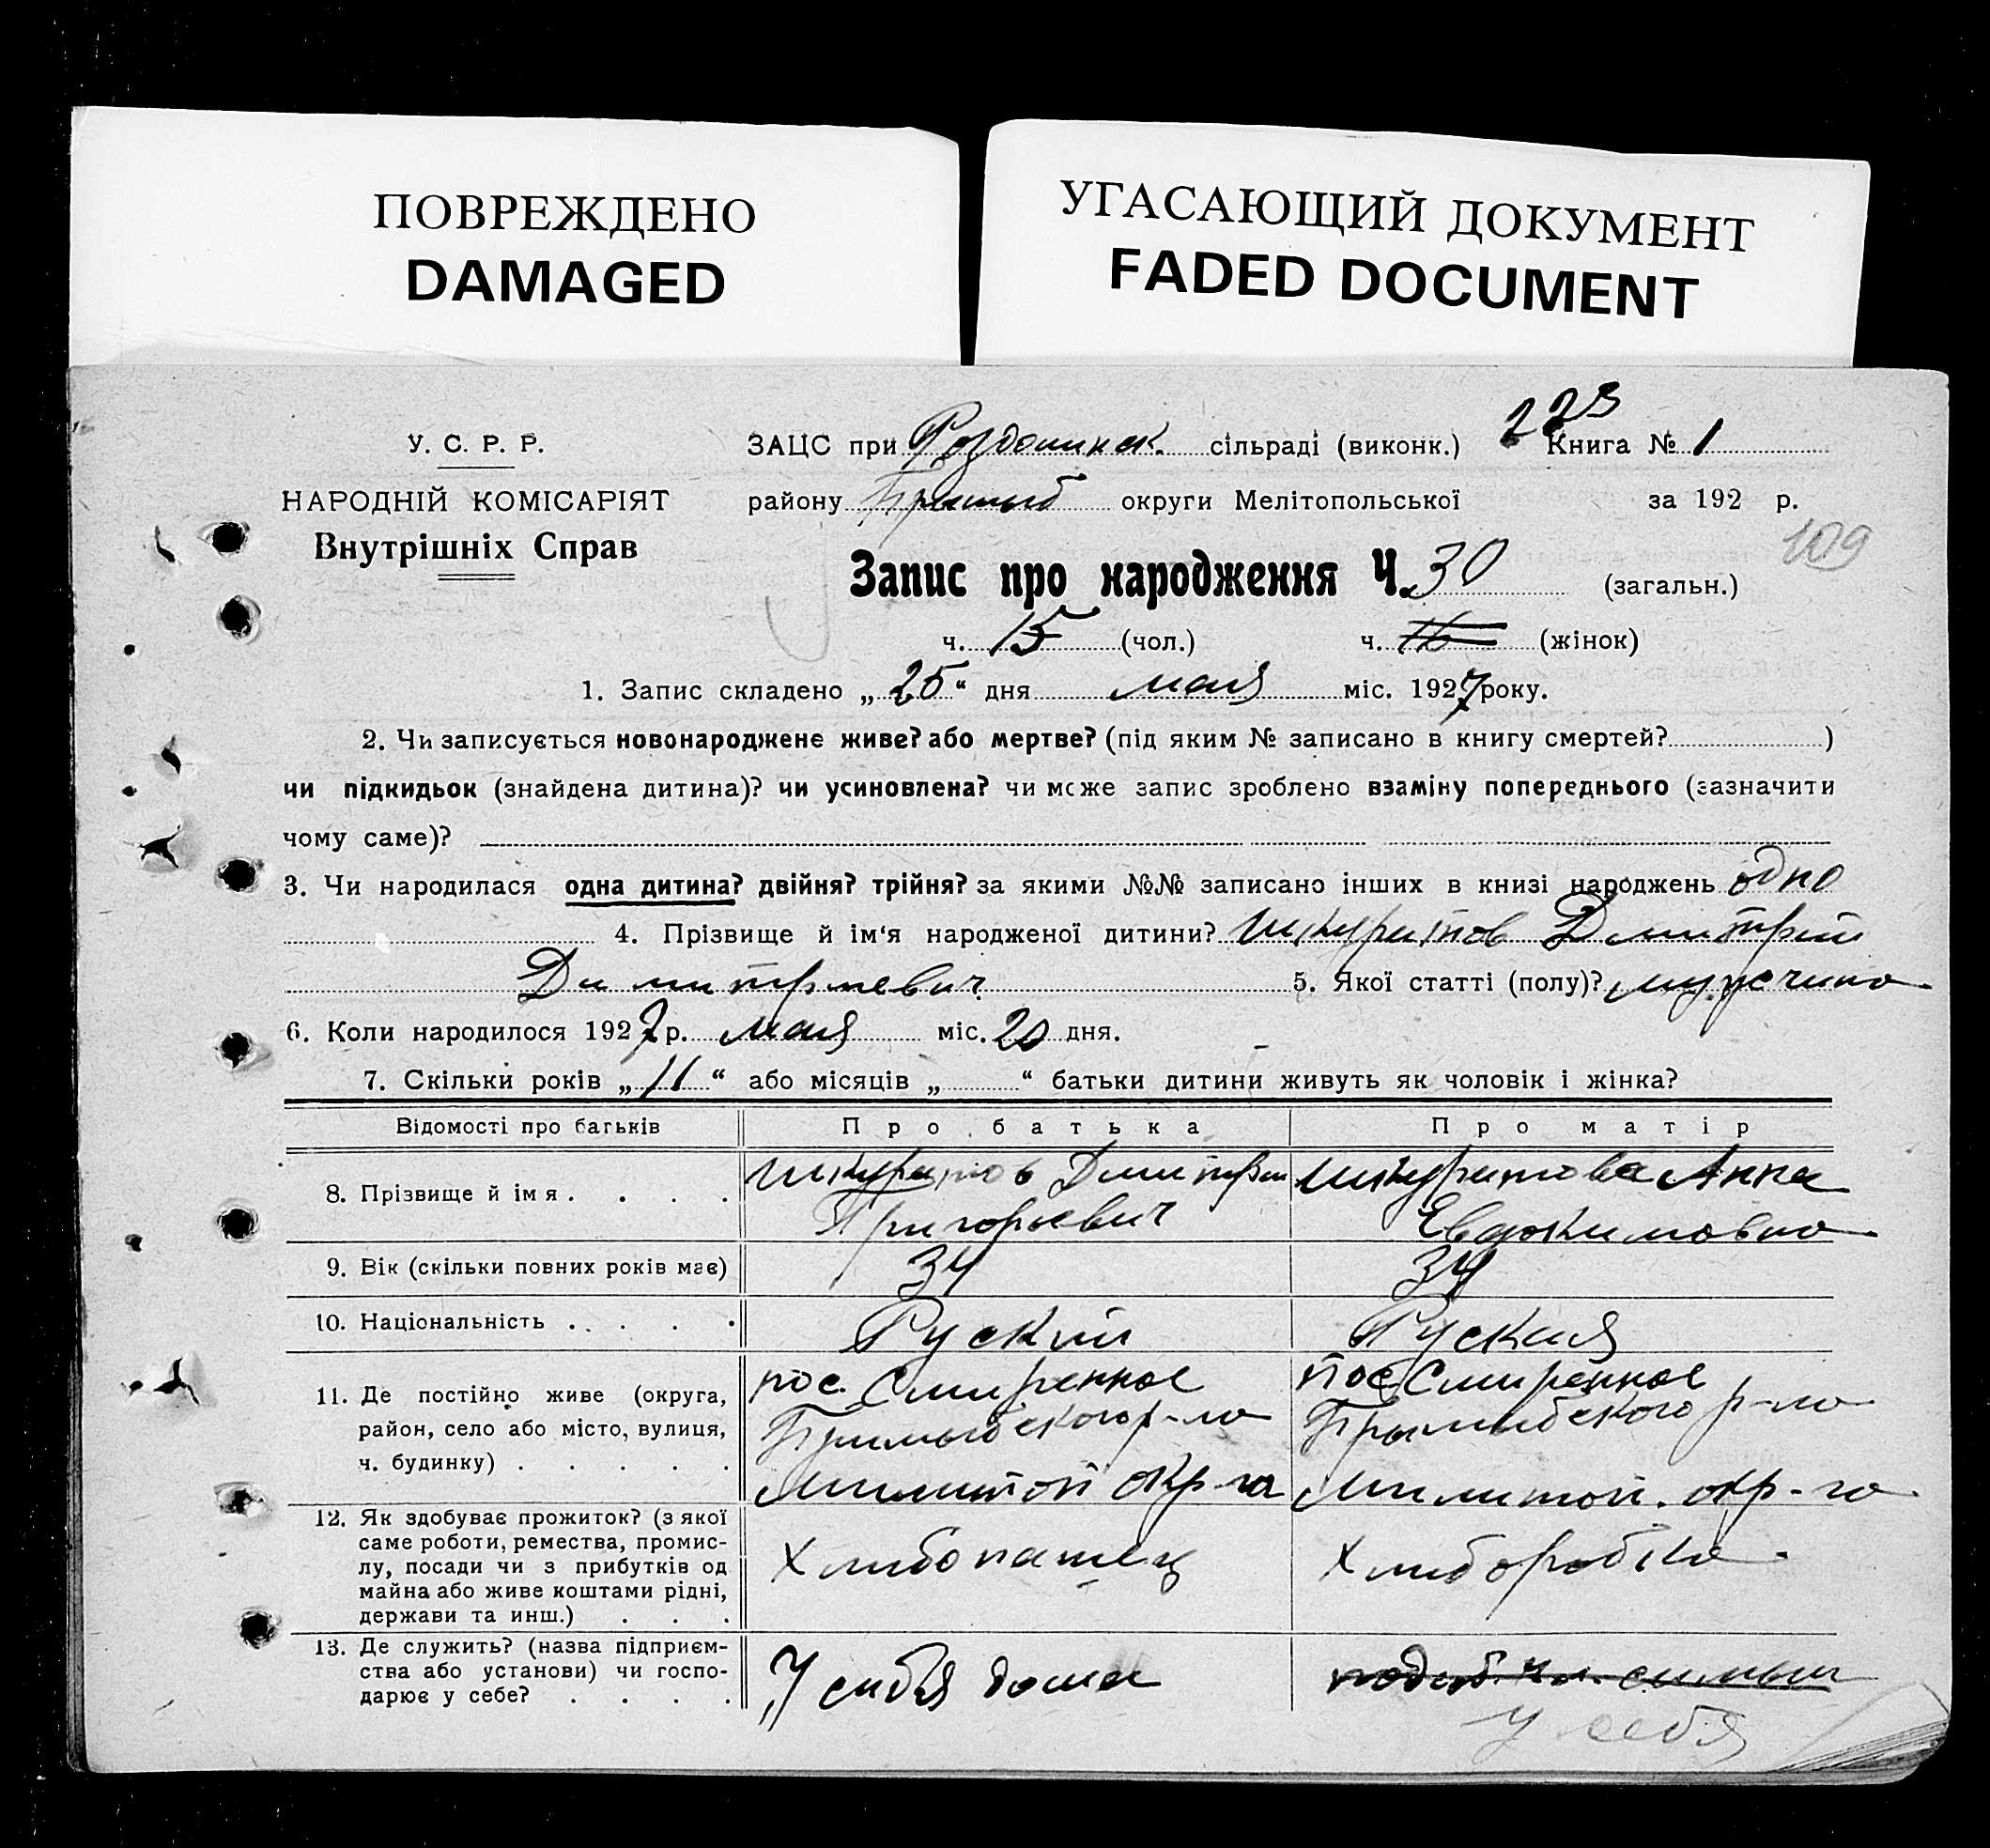 ПОВРЕЖДЕНО
DAMAGED
УГАСАЮЩИЙ ДОКУМЕНТ
FADED DOCUMENT
223
У. С. Р. Р.
НАРОДНІЙ КОМІСАРІЯТ
Внутрішніх Справ
ЗАЦС при сільраді (виконк.) Книга № 1
району Пришиб округи Мелітопольської за 192 р.
109
Запис про народження Ч. 30 (загальн.)
ч. 15 (чол.) ч. 16 (жінок)
1. Запис складено „ 25 “ дня мая міс. 1927 року.
2. Чи записується новонароджене живе? або мертве? (під яким № записано в книгу смертей? )
чи підкидьок (знайдена дитина)? чи усиновлена? чи може запис зроблено взаміну попереднього (зазначити
чому саме)?
3. Чи народилася одна дитина? двійня? трійня? за якими №№ записано інших в книзі народжень одно
4. Прізвище й ім‘я народженої дитини? Шкуратов Дмитрий
Димитриевич 5. Якої статті (полу)? мущина
6. Коли народилося 1927 р. мая міс. 20 дня.
7. Скільки років „ 11 “ або місяців „ “ батьки дитини живуть як чоловік і жінка?
Відомості про батьків Про батька Про матір
8. Прізвище й імя . . . . Шкуратов Дмитрий Григорьевич Шкуратова Анна Евдокимовна
9. Вік (скільки повних років має) 34 34
10. Національність . . . . Руский Руская
11. Де постійно живе (округа,
район, село або місто, вулиця,
ч. будинку) . . . . .
пос. Смиренное
Пришибского р-на
Милитоп окр-га
пос Смиренное
Пришибского р-на
Милитоп. окр-га
12. Як здобуває прожиток? (з якої
саме роботи, ремества, промис-
лу, посади чи з прибутків од
майна або живе коштами рідні,
держави та инш.) . . .
Хлибопашец
Хлиборобка
13. Де служить? (назва підприєм-
ства або установи) чи госпо-
дарює у себе? . . . .
У сибя дома
у себя